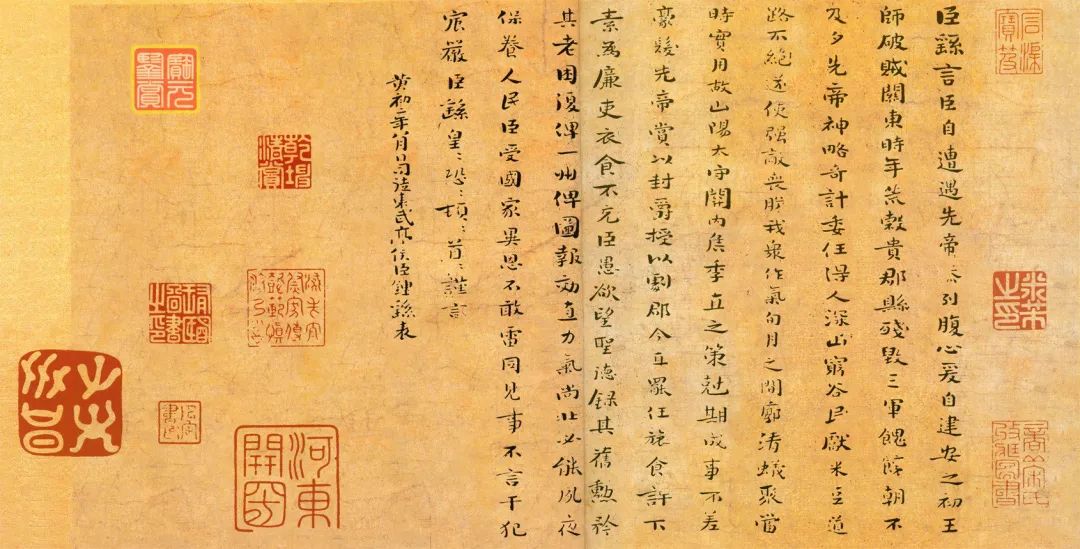 臣繇言臣自遭遇先帝忝列腹心爰自建安之初王
師破賊關東時年荒穀貴郡縣殘毀三軍餽饟朝不
及夕先帝神略奇計委任得人深山窮谷民獻米豆道
路不絕遂使强敵喪膽我衆作氣旬月之間廓清蟻聚當
時實用故山陽太守關內侯季直之策尅期成事不差
豪髮先帝賞以封爵授以劇郡今直罷任旅食許下
素為廉吏衣食不充臣愚欲望聖德錄其舊勳矜
其老困復俾一州俾圖報効直力氣尚壯必能夙夜
保養人民臣受國家異恩不敢雷同見事不言干犯
宸嚴臣繇皇〻恐〻頓〻首〻謹言
黃初二年八月日司徒東武亭侯臣鍾繇表
米芾之印
河東